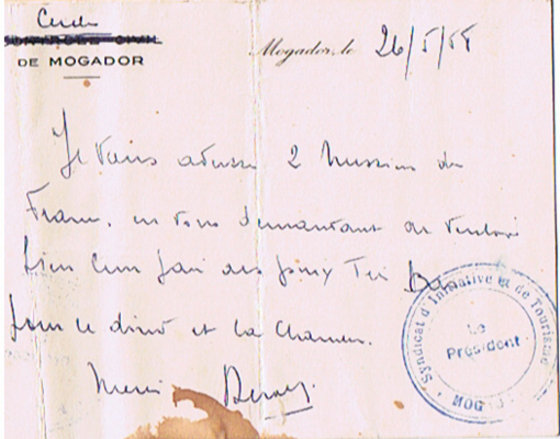 Cercle
CONTROLE CIVIL
DE MOGADOR
Mogador, le 26/5/58
Je vous adresse 2 Messieurs de
France, en vous demandant de vouloir
bien leur faire des prix Très Bas
pour le dîner et la chambre.
Merci
Syndicat d'Initiative et de Tourisme
Le
Président
MOG